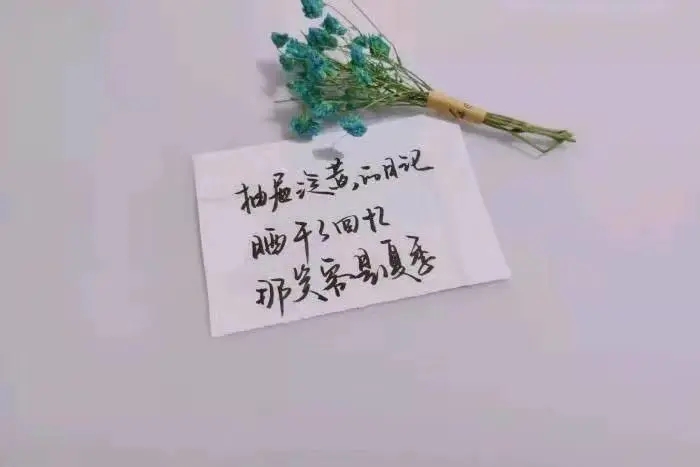 抽屉泛黄的日记
晒干了回忆
那笑容是夏季